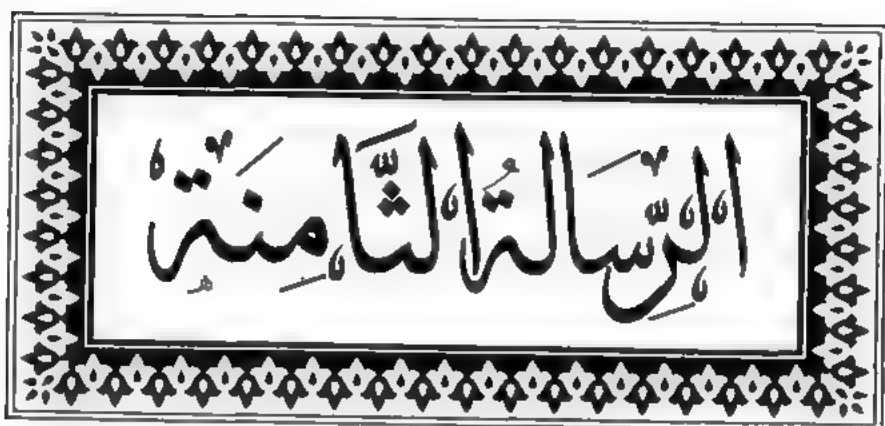 الرِّسَالَةُ الثَّامِنَةُ